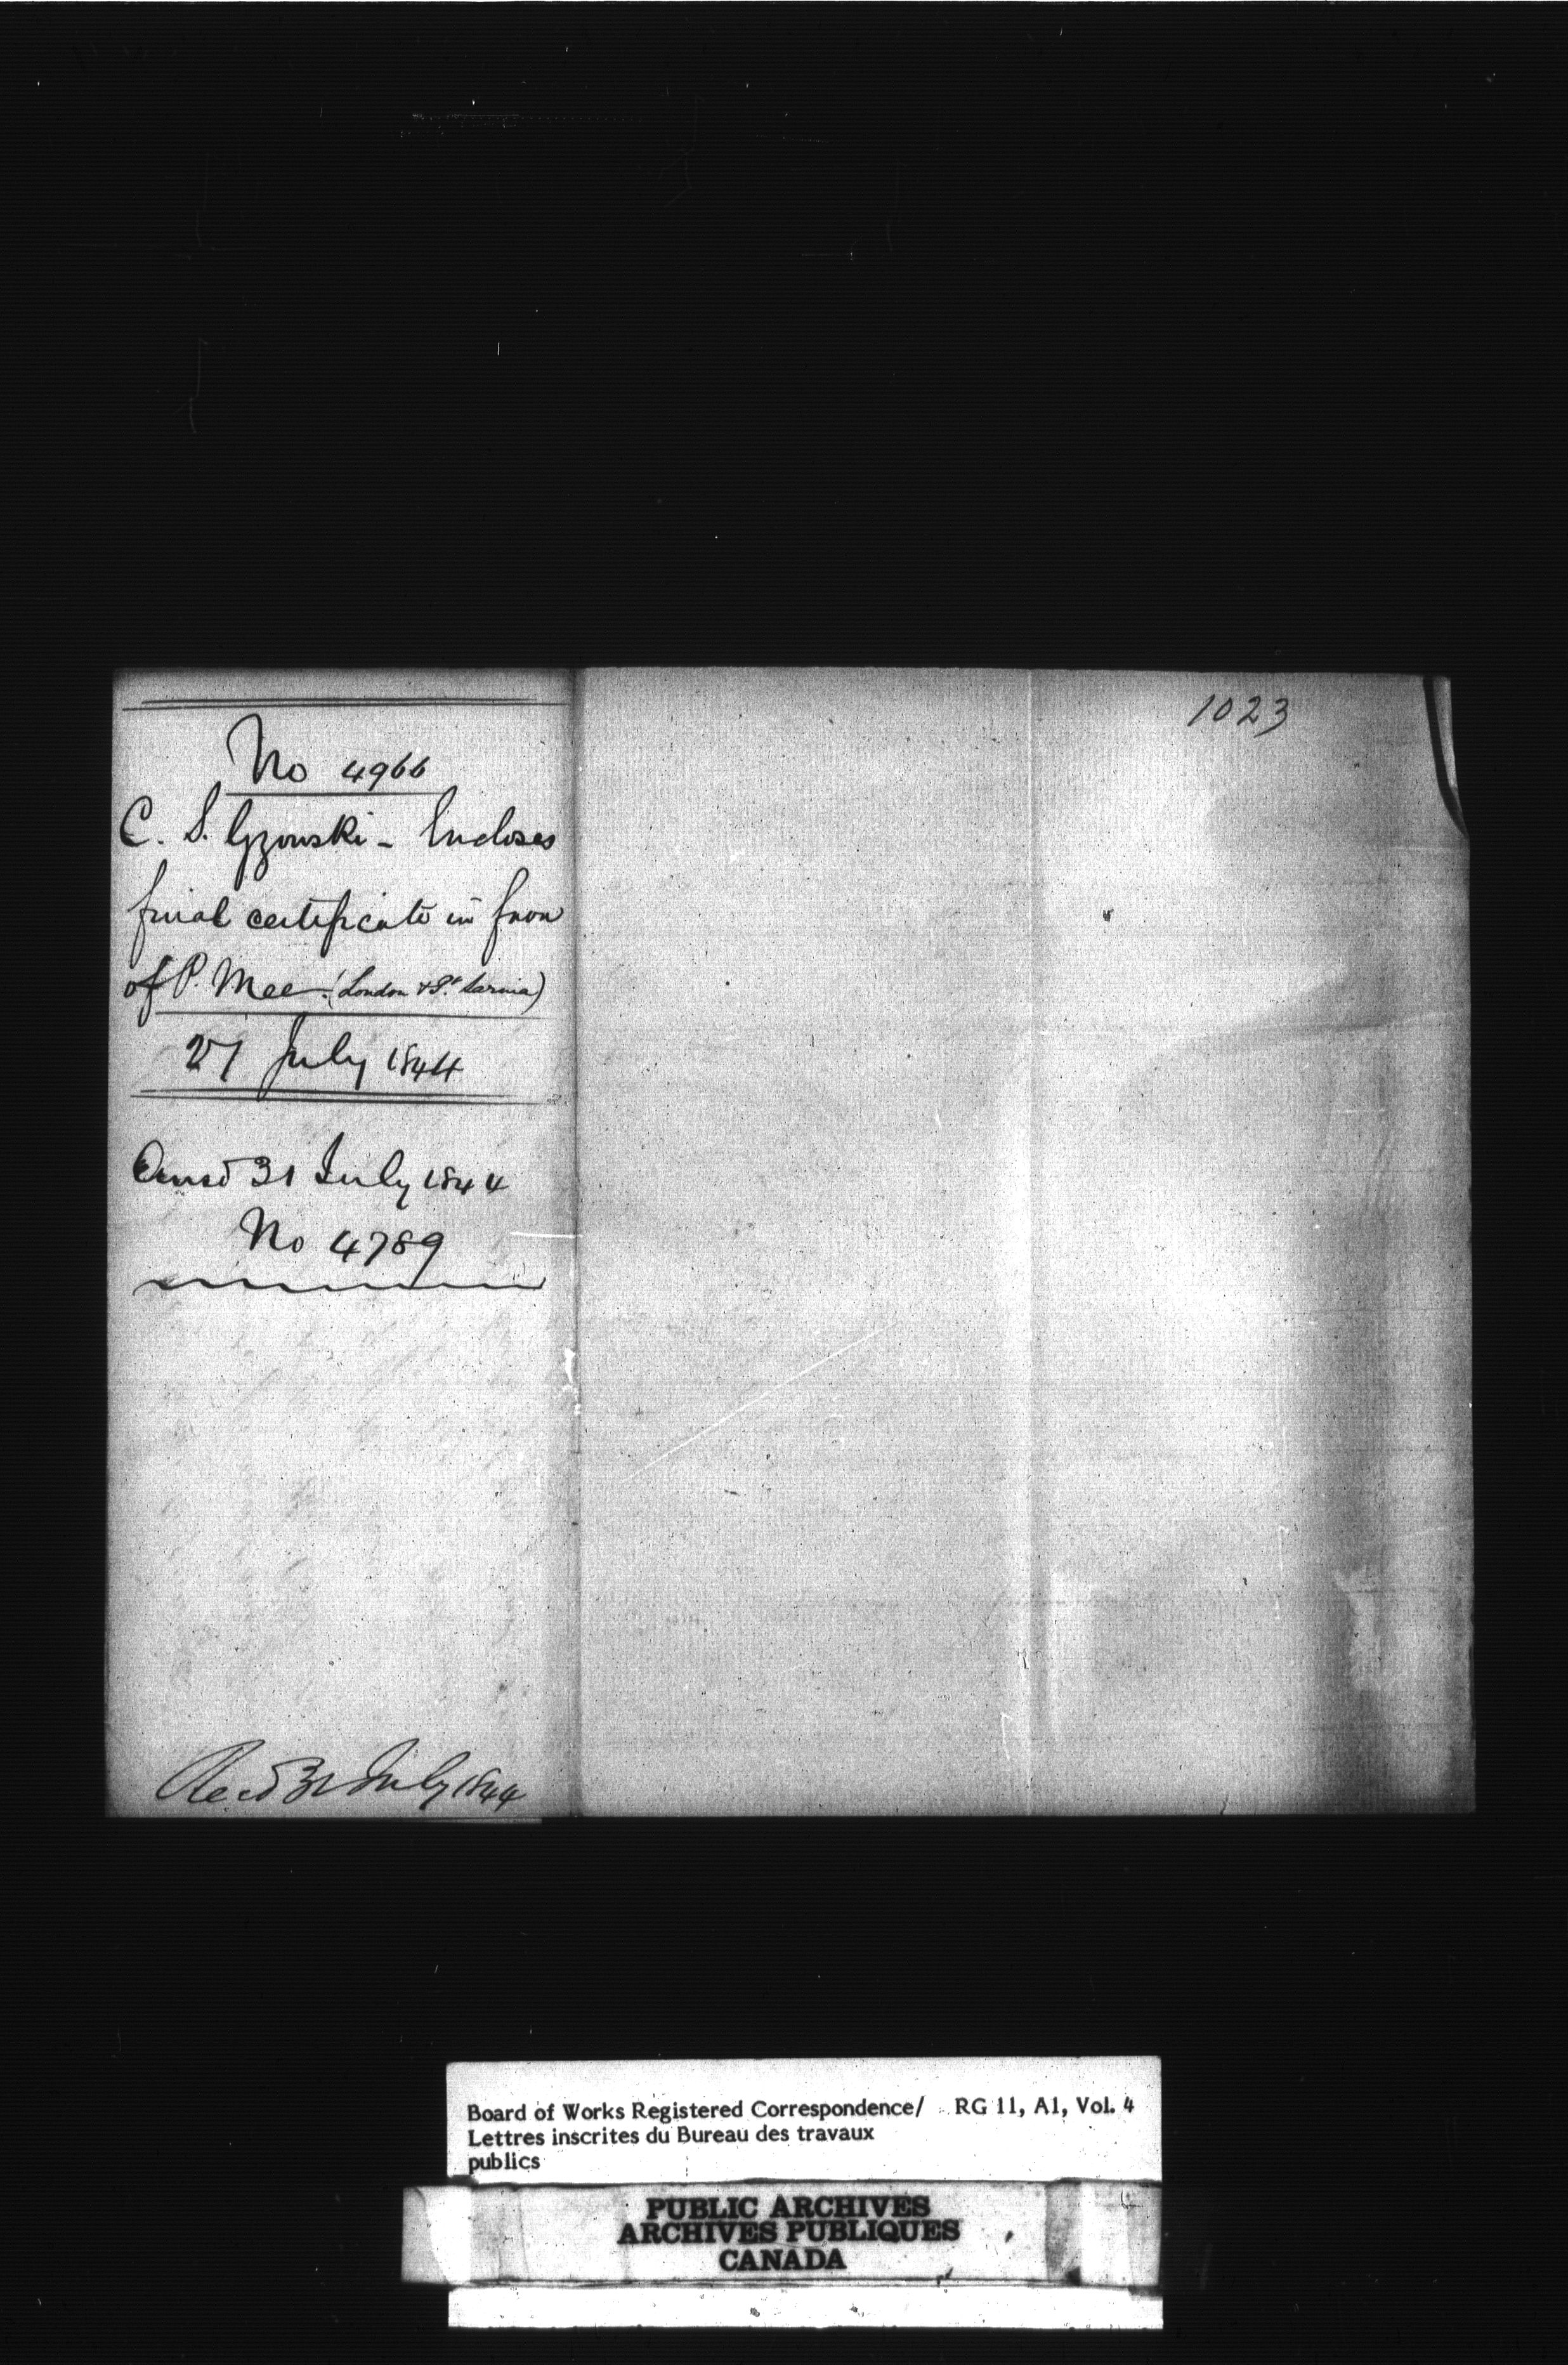 1023
No 4966
C. S. Gzowski - Encloses
final certificate in favor
of P. Mee - (London & Pt. Sarnia)
27 July 1844
Ansd 31 July 1844
No 4789
Recd 31 July 1844
Board of Works Registered Correspondence/ RG 11, A1, Vol. 4
Lettres inscrites du Bureau des travaux
publics
PUBLIC ARCHIVES
ARCHIVES PUBLIQUES
CANADA